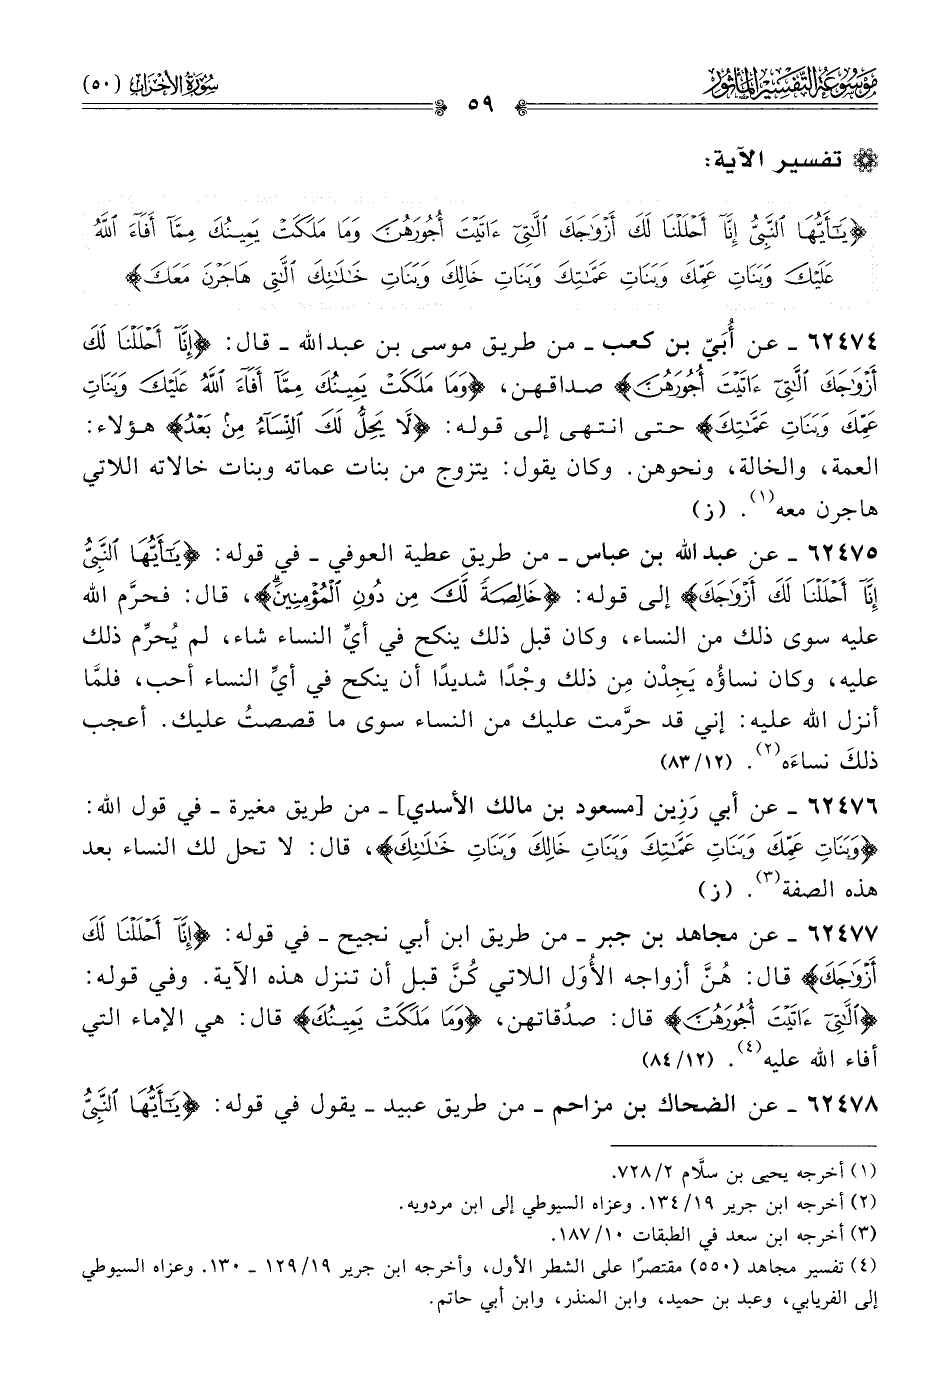 موسوعة التفسير المأثور
سورة الأحزاب (٥٠)
٥٩
تفسير الآية:
﴿يَٰٓأَيُّهَا ٱلنَّبِىُّ إِنَّآ أَحْلَلْنَا لَكَ أَزْوَٰجَكَ ٱلَّٰتِىٓ ءَاتَيْتَ أُجُورَهُنَّ وَمَا مَلَكَتْ يَمِينُكَ مِمَّآ أَفَآءَ ٱللَّهُ
عَلَيْكَ وَبَنَاتِ عَمِّكَ وَبَنَاتِ عَمَّٰتِكَ وَبَنَاتِ خَالِكَ وَبَنَاتِ خَٰلَٰتِكَ ٱلَّٰتِى هَاجَرْنَ مَعَكَ﴾
٦٢٤٧٤ ـ عن أُبَيّ بن كعب ـ من طريق موسى بن عبدالله ـ قال: ﴿إِنَّآ أَحْلَلْنَا لَكَ
أَزْوَٰجَكَ ٱلَّٰتِىٓ ءَاتَيْتَ أُجُورَهُنَّ﴾ صداقهن، ﴿وَمَا مَلَكَتْ يَمِينُكَ مِمَّآ أَفَآءَ ٱللَّهُ عَلَيْكَ وَبَنَاتِ
عَمِّكَ وَبَنَاتِ عَمَّٰتِكَ﴾ حتى انتهى إلى قوله: ﴿لَّا يَحِلُّ لَكَ ٱلنِّسَآءُ مِنۢ بَعْدُ﴾ هؤلاء:
العمة، والخالة، ونحوهن. وكان يقول: يتزوج من بنات عماته وبنات خالاته اللاتي
هاجرن معه(١). (ز)
٦٢٤٧٥ ـ عن عبد الله بن عباس ـ من طريق عطية العوفي ـ في قوله: ﴿يَٰٓأَيُّهَا ٱلنَّبِىُّ
إِنَّآ أَحْلَلْنَا لَكَ أَزْوَٰجَكَ﴾ إلى قوله: ﴿خَالِصَةً لَّكَ مِن دُونِ ٱلْمُؤْمِنِينَۗ﴾، قال: فحرَّم الله
عليه سوى ذلك من النساء، وكان قبل ذلك ينكح في أيِّ النساء شاء، لم يُحرِّم ذلك
عليه، وكان نساؤه يَجِدْن مِن ذلك وجْدًا شديدًا أن ينكح في أيِّ النساء أحب، فلمَّا
أنزل الله عليه: إني قد حرَّمت عليك من النساء سوى ما قصصتُ عليك. أعجب
ذلكَ نساءَه(٢). (٨٣/١٢)
٦٢٤٧٦ ـ عن أبي رَزِين [مسعود بن مالك الأسدي] ـ من طريق مغيرة ـ في قول الله:
﴿وَبَنَاتِ عَمِّكَ وَبَنَاتِ عَمَّٰتِكَ وَبَنَاتِ خَالِكَ وَبَنَاتِ خَٰلَٰتِكَ﴾، قال: لا تحل لك النساء بعد
هذه الصفة(٣). (ز)
٦٢٤٧٧ ـ عن مجاهد بن جبر ـ من طريق ابن أبي نجيح ـ في قوله: ﴿إِنَّآ أَحْلَلْنَا لَكَ
أَزْوَٰجَكَ﴾ قال: هُنَّ أزواجه الأُوَل اللاتي كُنَّ قبل أن تنزل هذه الآية. وفي قوله:
﴿ٱلَّٰتِىٓ ءَاتَيْتَ أُجُورَهُنَّ﴾ قال: صدُقاتهن، ﴿وَمَا مَلَكَتْ يَمِينُكَ﴾ قال: هي الإماء التي
أفاء الله عليه(٤). (٨٤/١٢)
٦٢٤٧٨ ـ عن الضحاك بن مزاحم ـ من طريق عبيد ـ يقول في قوله: ﴿يَٰٓأَيُّهَا ٱلنَّبِىُّ
(١) أخرجه يحيى بن سلَّام ٧٢٨/٢.
(٢) أخرجه ابن جرير ١٣٤/١٩. وعزاه السيوطي إلى ابن مردويه.
(٣) أخرجه ابن سعد في الطبقات ١٨٧/١٠.
(٤) تفسير مجاهد (٥٥٠) مقتصرًا على الشطر الأول، وأخرجه ابن جرير ١٢٩/١٩ ـ ١٣٠. وعزاه السيوطي
إلى الفريابي، وعبد بن حميد، وابن المنذر، وابن أبي حاتم.